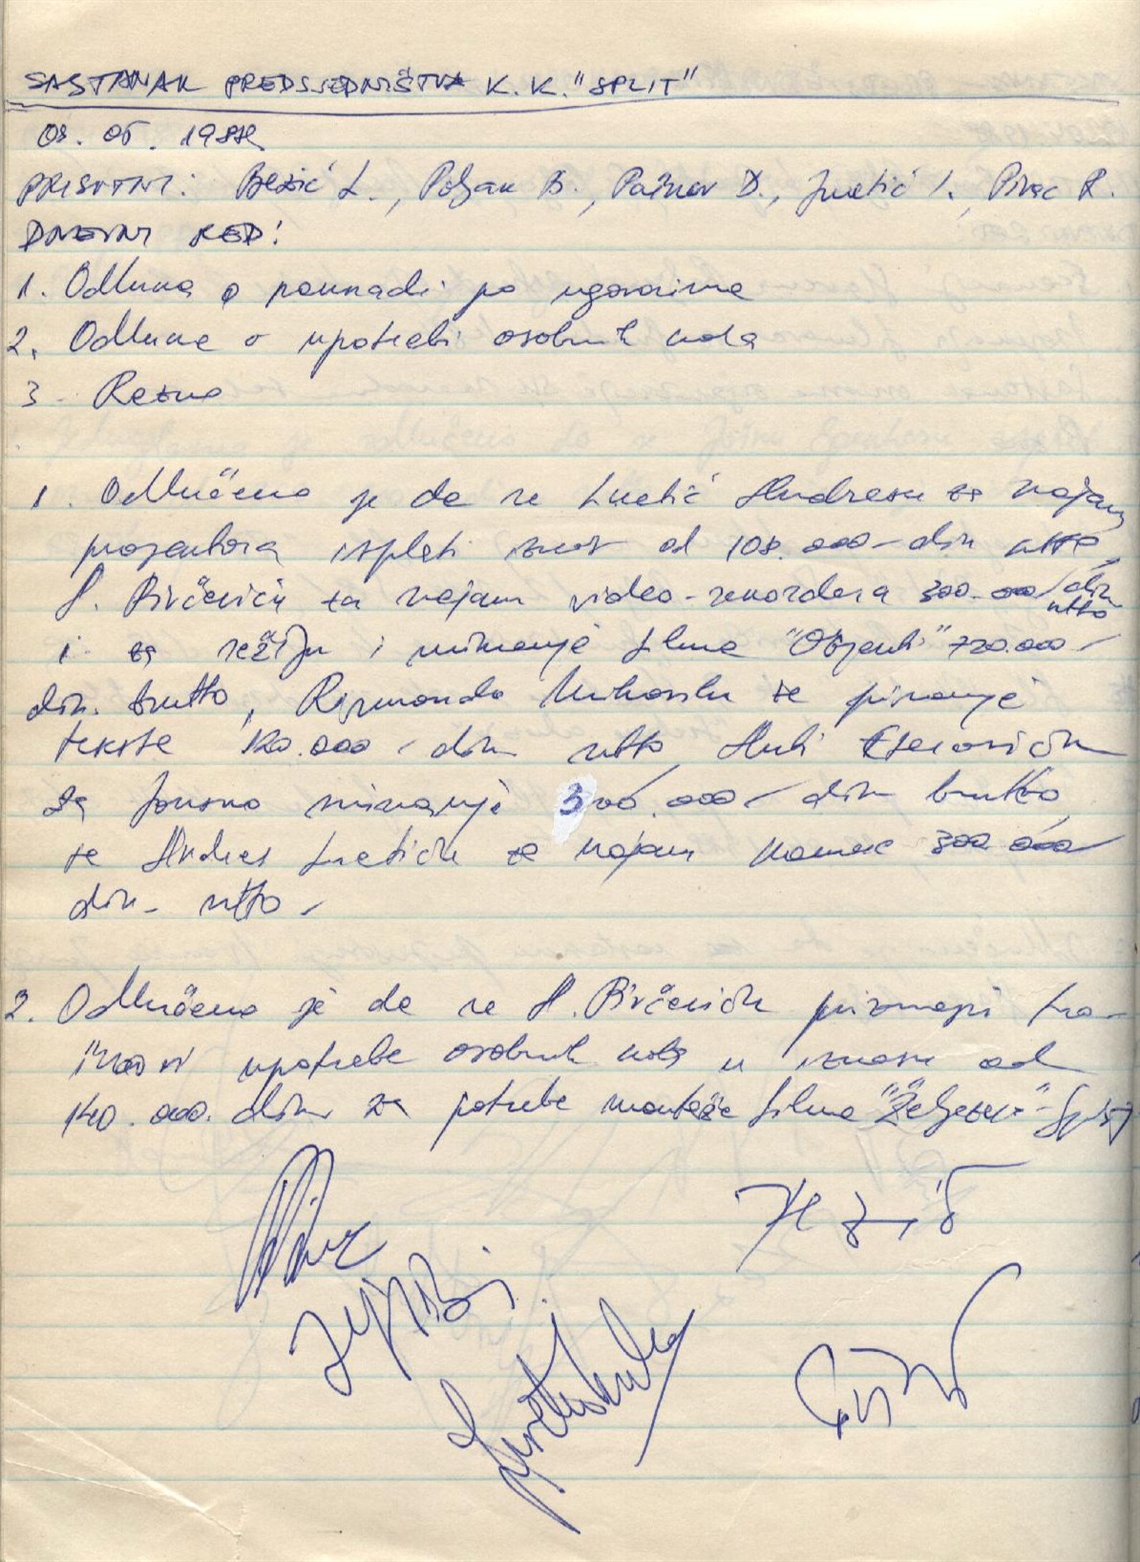 SASTANAK PREDSJEDNIŠTVA K.K. "SPLIT"
PRISUTNI: Bezić L., Poljak B., Pažnov D., Luetić I., Pivac R.
DNEVNI RED:
1. Odluka o naknadi po ugovorima
2. Odluke o upotrebi osobnih kola
3. Razno
1. Odlučeno je da se Luetić Andreau za najam
projektora isplati iznos od 108.000- din netto,
A. Birčeviću za najam video-rekordera 300.000/din
netto
i za režiju i snimanje filma "Objenti" 720.000/
din. brutto, za pisanje
teksta 120.000/ din netto,
za tonsko snimanje 300.000/ din brutto
te Andrea Luetiću za najam kamere 300.000/
din. netto-
2. Odlučeno je da se A. Birčeviću priznaju tro-
škovi upotrebe osobnih kola u iznosu od
140.000. din za potrebe montaže filma